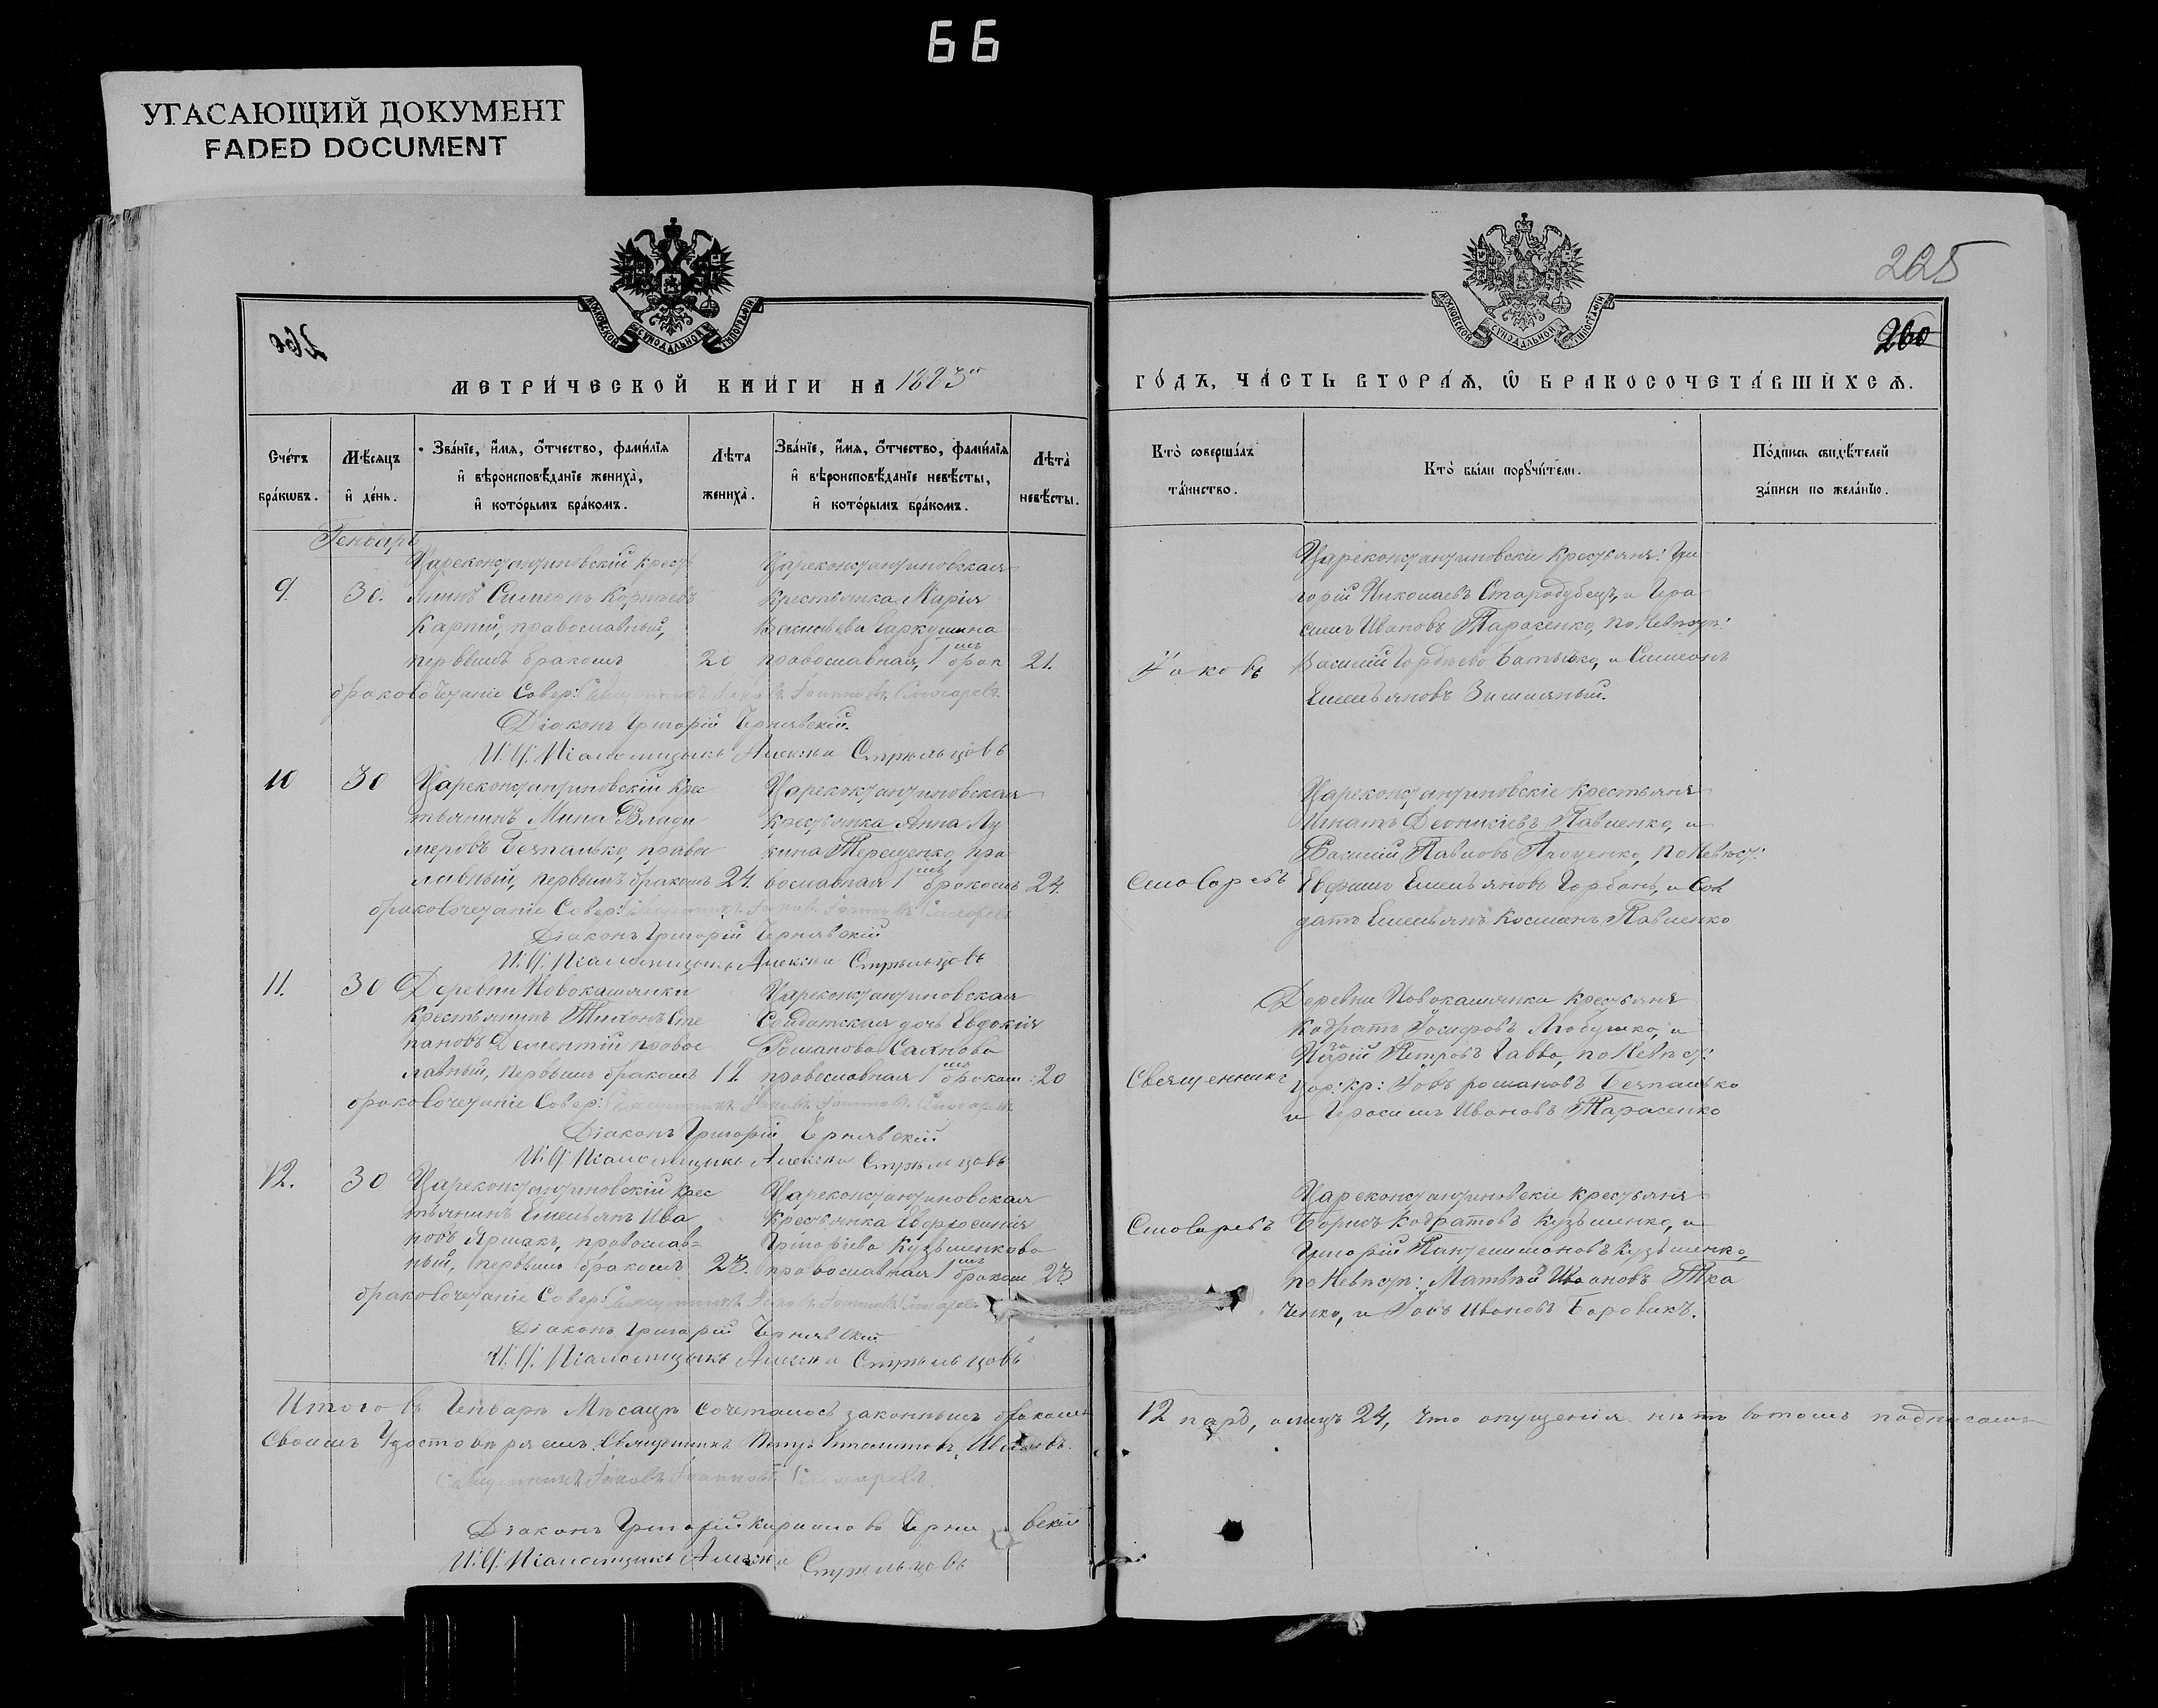 66
УГАСАЮЩИЙ ДОКУМЕНТ
FADED DOCUMENT
225
260
МЕТРИ́ЧЕСКОЙ КНИ́ГИ НА 1883й
ГО́ДЪ, ЧА́СТЬ ВТОРА́Ѧ, Ѡ҆ БРАКОСОЧЕТА́ВШИХСѦ.
Сче́тъ бра́кѡвъ.
Мѣ́сѧцъ и҆ де́нь.
Зва́нїе, и҆́мѧ, ѻ҆́тчество, фами́лїѧ и҆ вѣроисповѣ́данїе жениха̀, и҆ кото́рымъ бра́комъ.
Лѣ́та жениха̀.
Зва́нїе, и҆́мѧ, ѻ҆́тчество, фами́лїѧ и҆ вѣроисповѣ́данїе невѣ́сты, и҆ кото́рымъ бра́комъ.
Лѣ́та невѣ́сты.
Кто̀ соверша́лъ та́инство.
Кто̀ бы́ли порꙋчи́тели.
По́дпись свидѣ́телей за́писи по жела́нїю.
Генварь
9. 30.
Цареконстантиновскій крестьянинъ Симеонъ Корнѣевъ
Карпій, православный,
первымъ бракомъ 20
Цареконстантиновская
крестьянка Марія
Васильева Гаркушина
православная, 1мъ брак 21.
Яковъ
Цареконстантиновскіе крестьяне: Григорій Николаевъ Стародубецъ, и Герасимъ Ивановъ Тарасенко, по невѣст:
Василій Гордѣевъ Батыйко, и Симеонъ
Емельяновъ Зимляный.
бракосочетаніе Совер: Священникъ Іаковъ Іоанновъ Слюсаревъ
Діаконъ Григорій Чернявскій.
И. Д. Псаломщикъ Алексѣй Стрѣльцовъ
10 30
Цареконстантиновскій крестьянинъ Мина Владимеровъ Безпалько, православный, первымъ бракомъ 24.
Цареконстантиновская
крестьянка Анна Лукина Терещенко, православная 1мъ бракомъ 24.
Слюсаревъ
Цареконстантиновскіе крестьяне
Игнатъ Деонисіевъ Павленко, и
Василій Павловъ Проценко, по невѣст:
Евфимъ Емельяновъ Горбань, и Солдатъ Емельянъ Косменъ Павленко
бракосочетаніе Совер: Священникъ Іаковъ Іоанновъ Слюсаревъ
Діаконъ Григорій Чернявскій
И. Д. Псаломщикъ Алексѣй Стрѣльцовъ
11. 30
Деревни Новокашянки
крестьянинъ Тихонъ Степановъ Дементій православный, первымъ бракомъ 19.
Цареконстантиновская
Солдатская дочь Евдокія
Романова Сакнова
православная 1мъ браком: 20
Священникъ
Деревни Новокашянки крестьяне
Кодратъ Іосифовъ Любушко, и
Петровъ Гавва, по невѣст:
Цар: кр: Іовъ романовъ Безпалько
и Герасимъ Ивановъ Тарасенко
бракосочетаніе Совер: Священникъ Іаковъ Іоанновъ Слюсаревъ
Діаконъ Григорій Чернявскій
И. Д. Псаломщикъ Алексѣй Стрѣльцовъ
12. 30
Цареконстантиновскій крестьянинъ Емельянъ Ивановъ Ярмакъ, православ=
ный, первымъ бракомъ 23.
Цареконстантиновская
крестьянка Евфросинія
Григоріева Кузьменкова
православная 1мъ браком 23
Слюсаревъ
Цареконстантиновскіе крестьяне
Борисъ Кодратовъ Кузьменко, и
Григорій Пантелимоновъ Кузьменко,
по невѣст: Матвѣй Ивановъ Ткаченко, и Іовъ Ивановъ Боровикъ.
бракосочетаніе Совер: Священникъ Іаковъ Іоанновъ Слюсаревъ
Діаконъ Григорій Чернявскій
И. Д. Псаломщикъ Алексѣй Стрѣльцовъ
Итого въ Генварѣ Мѣсяцѣ сочеталось законнымъ бракомъ 12 паръ, а лицъ 24, что опущенія нѣтъ въ томъ подписомъ
Своимъ Удостовѣряемъ. Священникъ Петръ Ипполитовъ Ивановъ.
Священникъ Іаковъ Іоанновъ Слюсаревъ.
Діаконъ Григорій Кириловъ Чернявскій
И. Д. Псаломщикъ Алексѣй Стрѣльцовъ